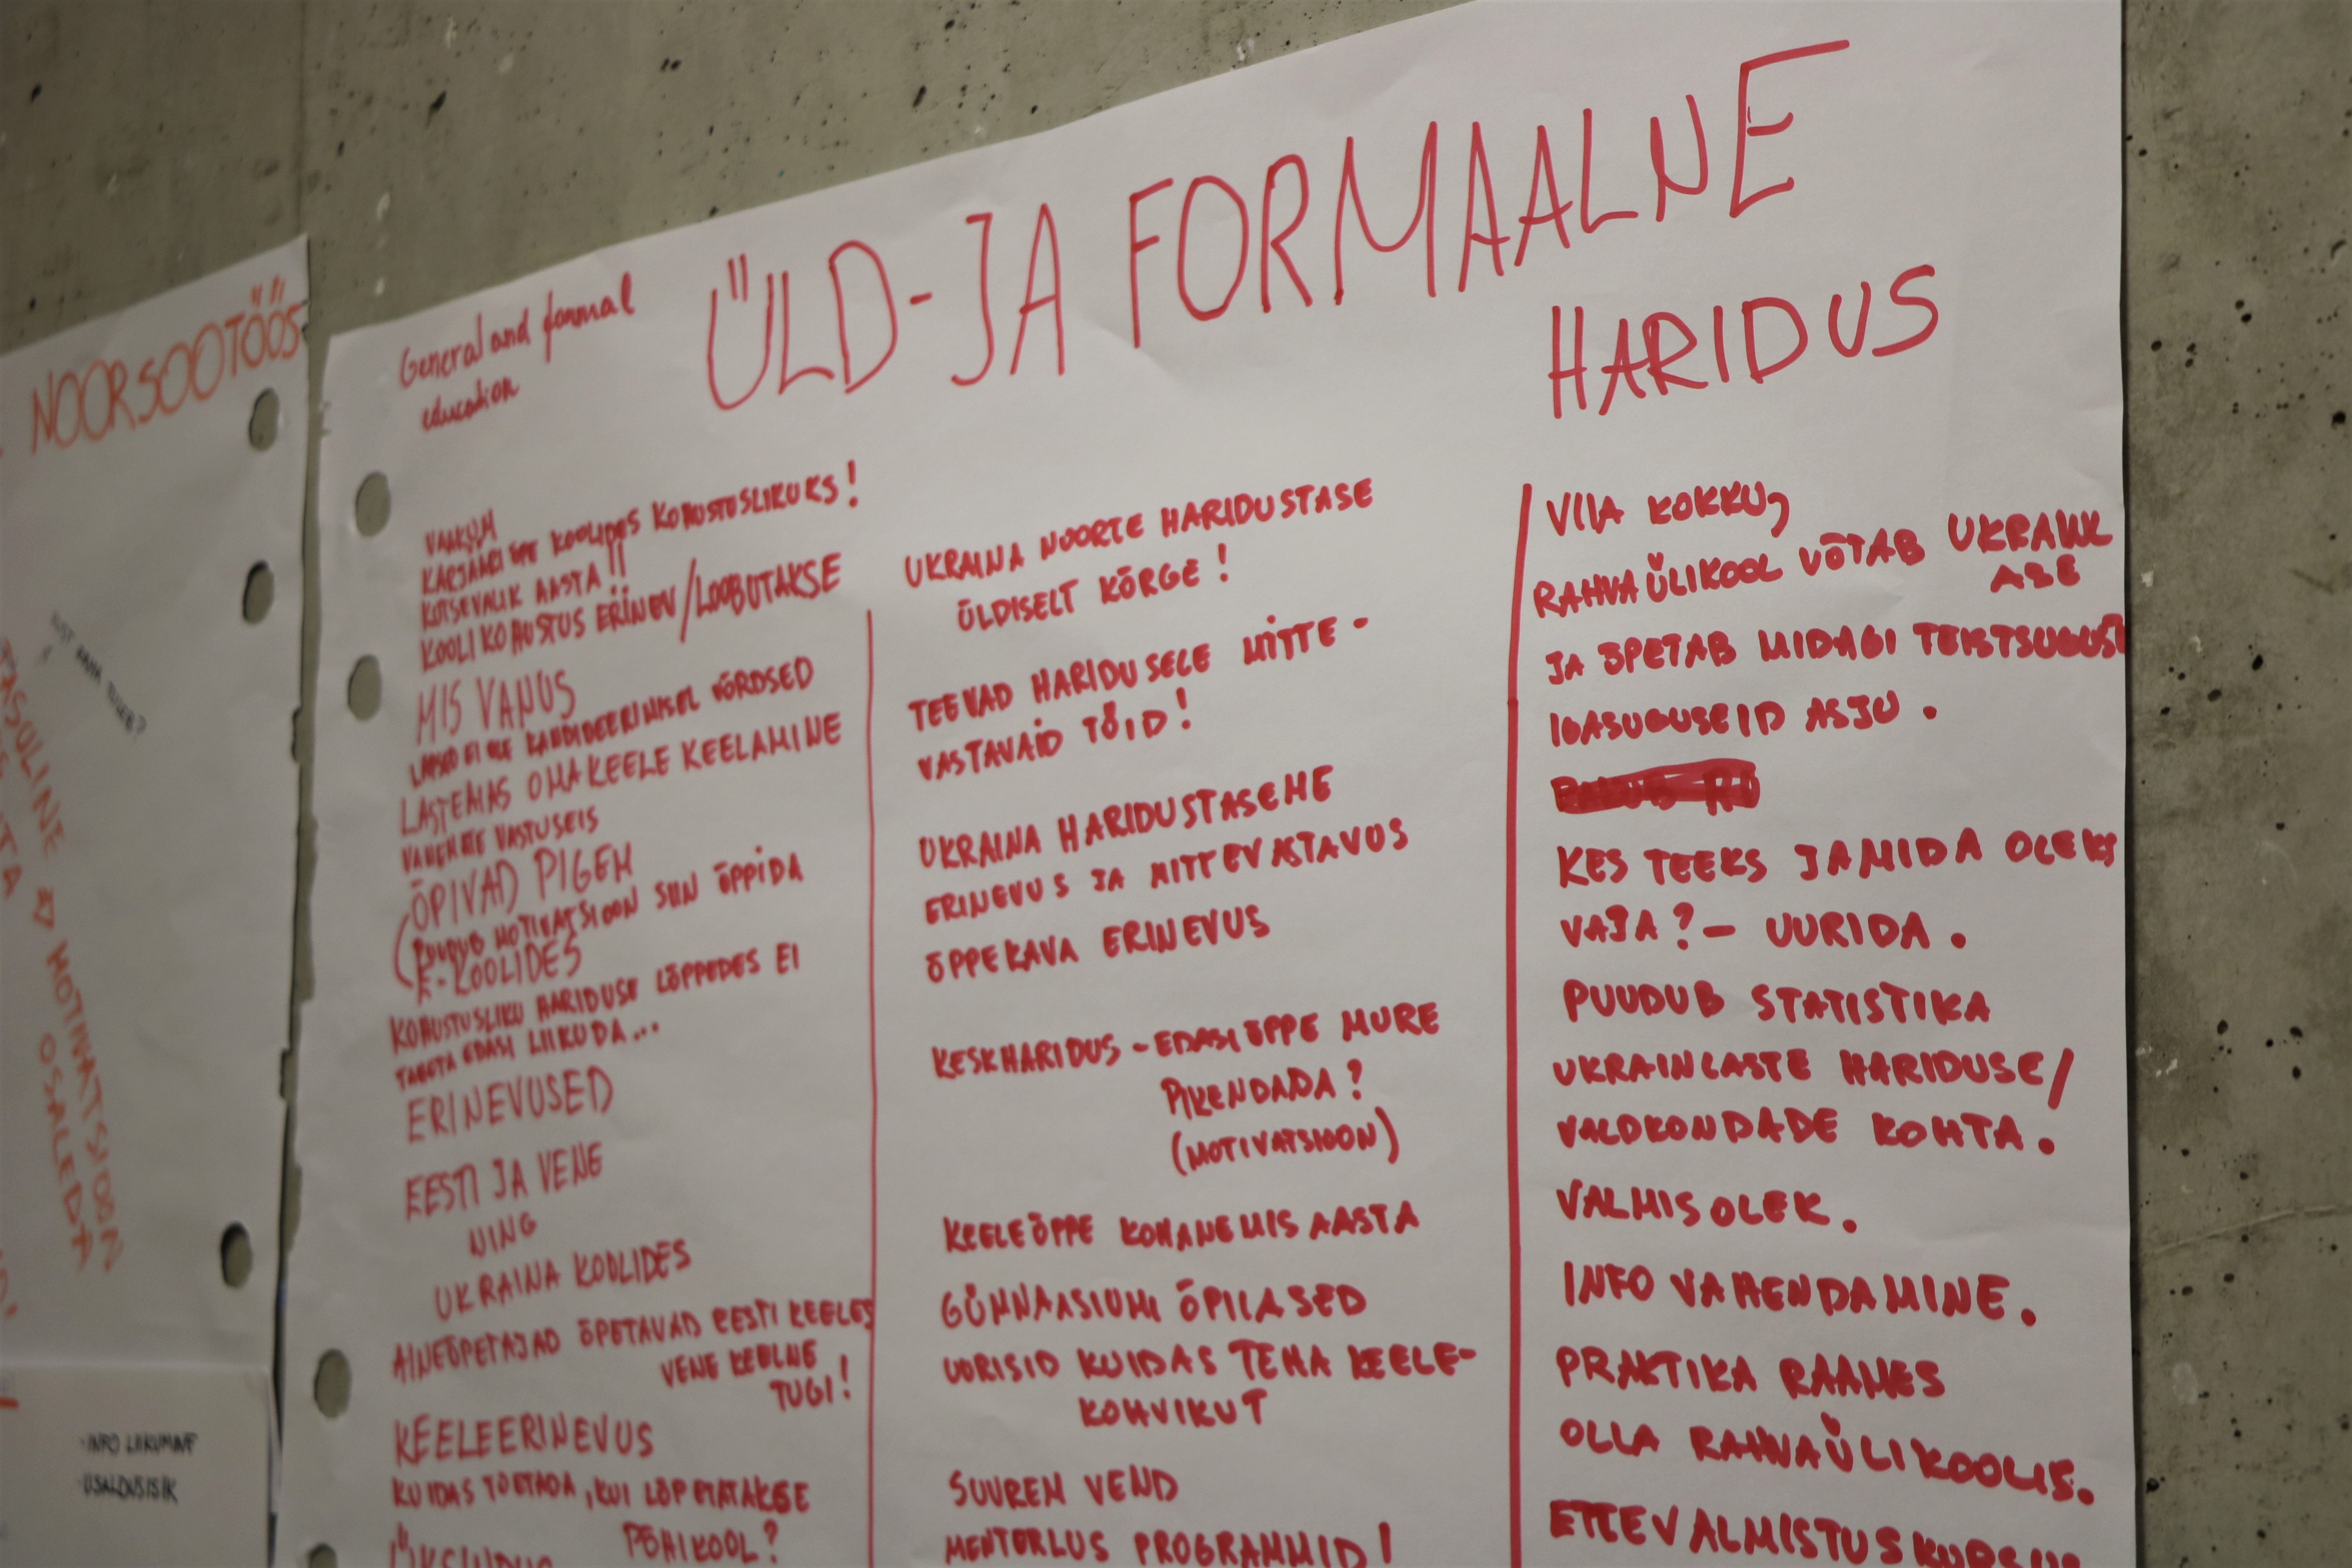 NOORSOOTÖÖS
MOTIVATSIOON
OSALEDA
INFO LIIKUMINE
USALDUSISIK
General and formal
education
ÜLD-JA FORMAALNE
HARIDUS
VAAKUM
KARJÄÄRI ÕPE KOOLIDES KOHUSTUSLIKUKS!
KUTSEVALIK AASTA!!
KOOLIKOHUSTUS ERINEV/LOOBUTAKSE
MIS VANUS
LAPSED EI OLE KANDIDEERIMISEL VÕRDSED
LASTEAIAS OMAKEELE KEELAMINE
VANEMATE VASTUSEIS
ÕPIVAD PIGEM
(PUUDUB MOTIVATSIOON SIIN ÕPPIDA
E-KOOLIDES
KOHUSTUSLIKU HARIDUSE LÕPPEDES EI
TAHETA EDASI LIIKUDA...
ERINEVUSED
EESTI JA VENE
NING
UKRAINA KOOLIDES
AINEÕPETAJAD ÕPETAVAD EESTI KEELES
VENE KEELNE
TUGI!
KEELEERINEVUS
KUIDAS TOETADA, KUI LÕPETATAKSE
PÕHIKOOL?
UKRAINA NOORTE HARIDUSTASE
ÜLDISELT KÕRGE!
TEEVAD HARIDUSELE MITTE-
VASTAVAID TÖID!
UKRAINA HARIDUSTASEME
ERINEVUS JA MITTEVASTAVUS
ÕPPEKAVA ERINEVUS
KESKHARIDUS - EDASIÕPPE MURE
PIKENDADA?
(MOTIVATSIOON)
KEELEÕPPE KOHANEMISAASTA
GÜMNAASIUMI ÕPILASED
UURISID KUIDAS TEHA KEELE-
KOHVIKUT
SUUREM VEND
MENTORLUS PROGRAMMID!
VIIA KOKKU,
RAHVAÜLIKOOL VÕTAB UKRAINL
ASE
JA ÕPETAB MIDAGI TEISTSUGUST
IGASUGUSEID ASJU.
KES TEEKS JA MIDA OLEKS
VAJA? - UURIDA.
PUUDUB STATISTIKA
UKRAINLASTE HARIDUSE/
VALDKONDADE KOHTA.
VALMISOLEK.
INFO VAHENDAMINE.
PRAKTIKA RAAMES
OLLA RAHVAÜLIKOOLIS.
ETTEVALMISTUSKURSUS